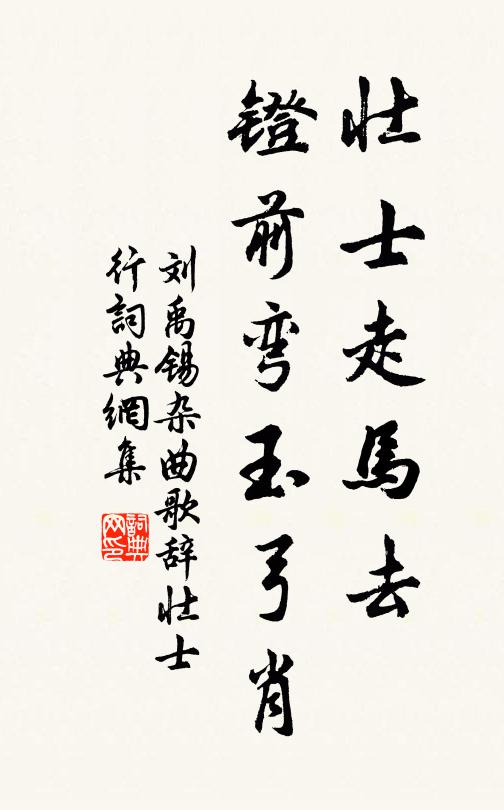 壮士走馬去
镫前弯玉弓肖
刘禹锡杂曲歌辞壮士
行詞典網集
詞典网印